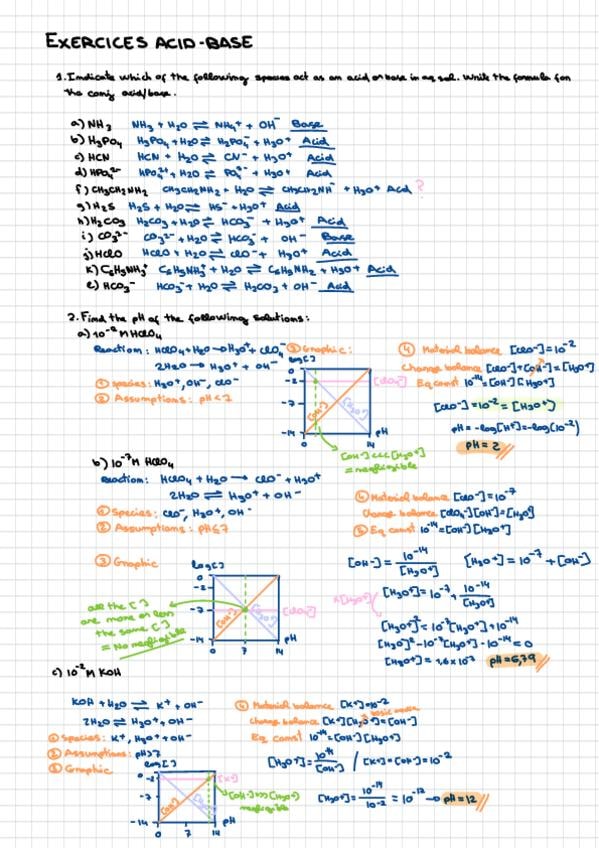 EXERCICES ACID-BASE
1. Indicate which of the following species act as an acid or base in aq sol. Write the formula for
the conj acid/base.
a) NH₃ NH₃ + H₂O ⇌ NH₄⁺ + OH⁻ Base
b) H₃PO₄ H₃PO₄ + H₂O ⇌ H₂PO₄⁻ + H₃O⁺ Acid
c) HCN HCN + H₂O ⇌ CN⁻ + H₃O⁺ Acid
d) HPO₄²⁻ + H₂O ⇌ PO₄³⁻ + H₃O⁺ Acid
f) CH₃CH₂NH₂ CH₃CH₂NH₂ + H₂O ⇌ CH₃CH₂NH⁻ + H₃O⁺ Acid ?
g) H₂S H₂S + H₂O ⇌ HS⁻ + H₃O⁺ Acid
h) H₂CO₃ H₂CO₃ + H₂O ⇌ HCO₃⁻ + H₃O⁺ Acid
i) CO₃²⁻ CO₃²⁻ + H₂O ⇌ HCO₃⁻ + OH⁻ Base
j) HClO HClO + H₂O ⇌ ClO⁻ + H₃O⁺ Acid
k) C₆H₅NH₃⁺ C₆H₅NH₃⁺ + H₂O ⇌ C₆H₅NH₂ + H₃O⁺ Acid
l) HCO₃⁻ HCO₃⁻ + H₂O ⇌ H₂CO₃ + OH⁻ Acid
2. Find the pH of the following solutions:
a) 10⁻² M HClO₄
Reaction: HClO₄ + H₂O → H₃O⁺ + ClO₄⁻
2H₂O ⇌ H₃O⁺ + OH⁻
① Species: H₃O⁺, OH⁻, ClO⁻
② Assumptions: pH < 7
③ Graphic:
log[ ]
0
-2
-7
-14
0
14
pH
[ClO₄⁻]
[OH⁻]
[H₃O⁺]
[OH⁻] <<< [H₃O⁺]
= negligible
④ Material balance [ClO₄⁻] = 10⁻²
Charge balance [ClO₄⁻] + [OH⁻] = [H₃O⁺]
Eq const 10⁻¹⁴ = [OH⁻][H₃O⁺]
[ClO₄⁻] = 10⁻² = [H₃O⁺]
pH = -log[H⁺] = -log(10⁻²)
pH = 2
b) 10⁻⁷ M HClO₄
Reaction: HClO₄ + H₂O → ClO₄⁻ + H₃O⁺
2H₂O ⇌ H₃O⁺ + OH⁻
① Species: ClO₄⁻, H₃O⁺, OH⁻
② Assumptions: pH ≤ 7
③ Graphic
log[ ]
0
-7
-14
0
7
14
pH
[OH⁻]
[H₃O⁺]
[ClO₄⁻]
all the [ ]
are more or less
the same [ ]
= No negligible
④ Material balance [ClO₄⁻] = 10⁻⁷
Charge balance [ClO₄⁻][OH⁻] = [H₃O⁺]
⑤ Eq const 10⁻¹⁴ = [OH⁻][H₃O⁺]
[OH⁻] = 10⁻¹⁴/[H₃O⁺] [H₃O⁺] = 10⁻⁷ + [OH⁻]
×[H₃O⁺] [H₃O⁺] = 10⁻⁷ + 10⁻¹⁴/[H₃O⁺]
[H₃O⁺]² = 10⁻⁷[H₃O⁺] + 10⁻¹⁴
[H₃O⁺]² - 10⁻⁷[H₃O⁺] - 10⁻¹⁴ = 0
[H₃O⁺] = 1,6 × 10⁻⁷ pH = 6,79
c) 10⁻² M KOH
KOH + H₂O ⇌ K⁺ + OH⁻
2H₂O ⇌ H₃O⁺ + OH⁻
① Species: K⁺, H₃O⁺ + OH⁻
② Assumptions: pH > 7
③ Graphic
log[ ]
0
-2
-7
-14
0
7
14
pH
[K⁺]
[OH⁻]
[H₃O⁺]
[OH⁻] >>> [H₃O⁺]
negligible
④ Material balance [K⁺] = 10⁻²
Charge balance [K⁺][H₃O⁺] = [OH⁻]
Eq const 10⁻¹⁴ = [OH⁻][H₃O⁺]
[H₃O⁺] = 10⁻¹⁴/[OH⁻] / [K⁺] = [OH⁻] = 10⁻²
[H₃O⁺] = 10⁻¹⁴/10⁻² = 10⁻¹² → pH = 12